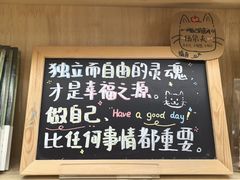 独立而自由的灵魂
才是幸福之源。
做自己、Have a good day!
比任何事情都重要。